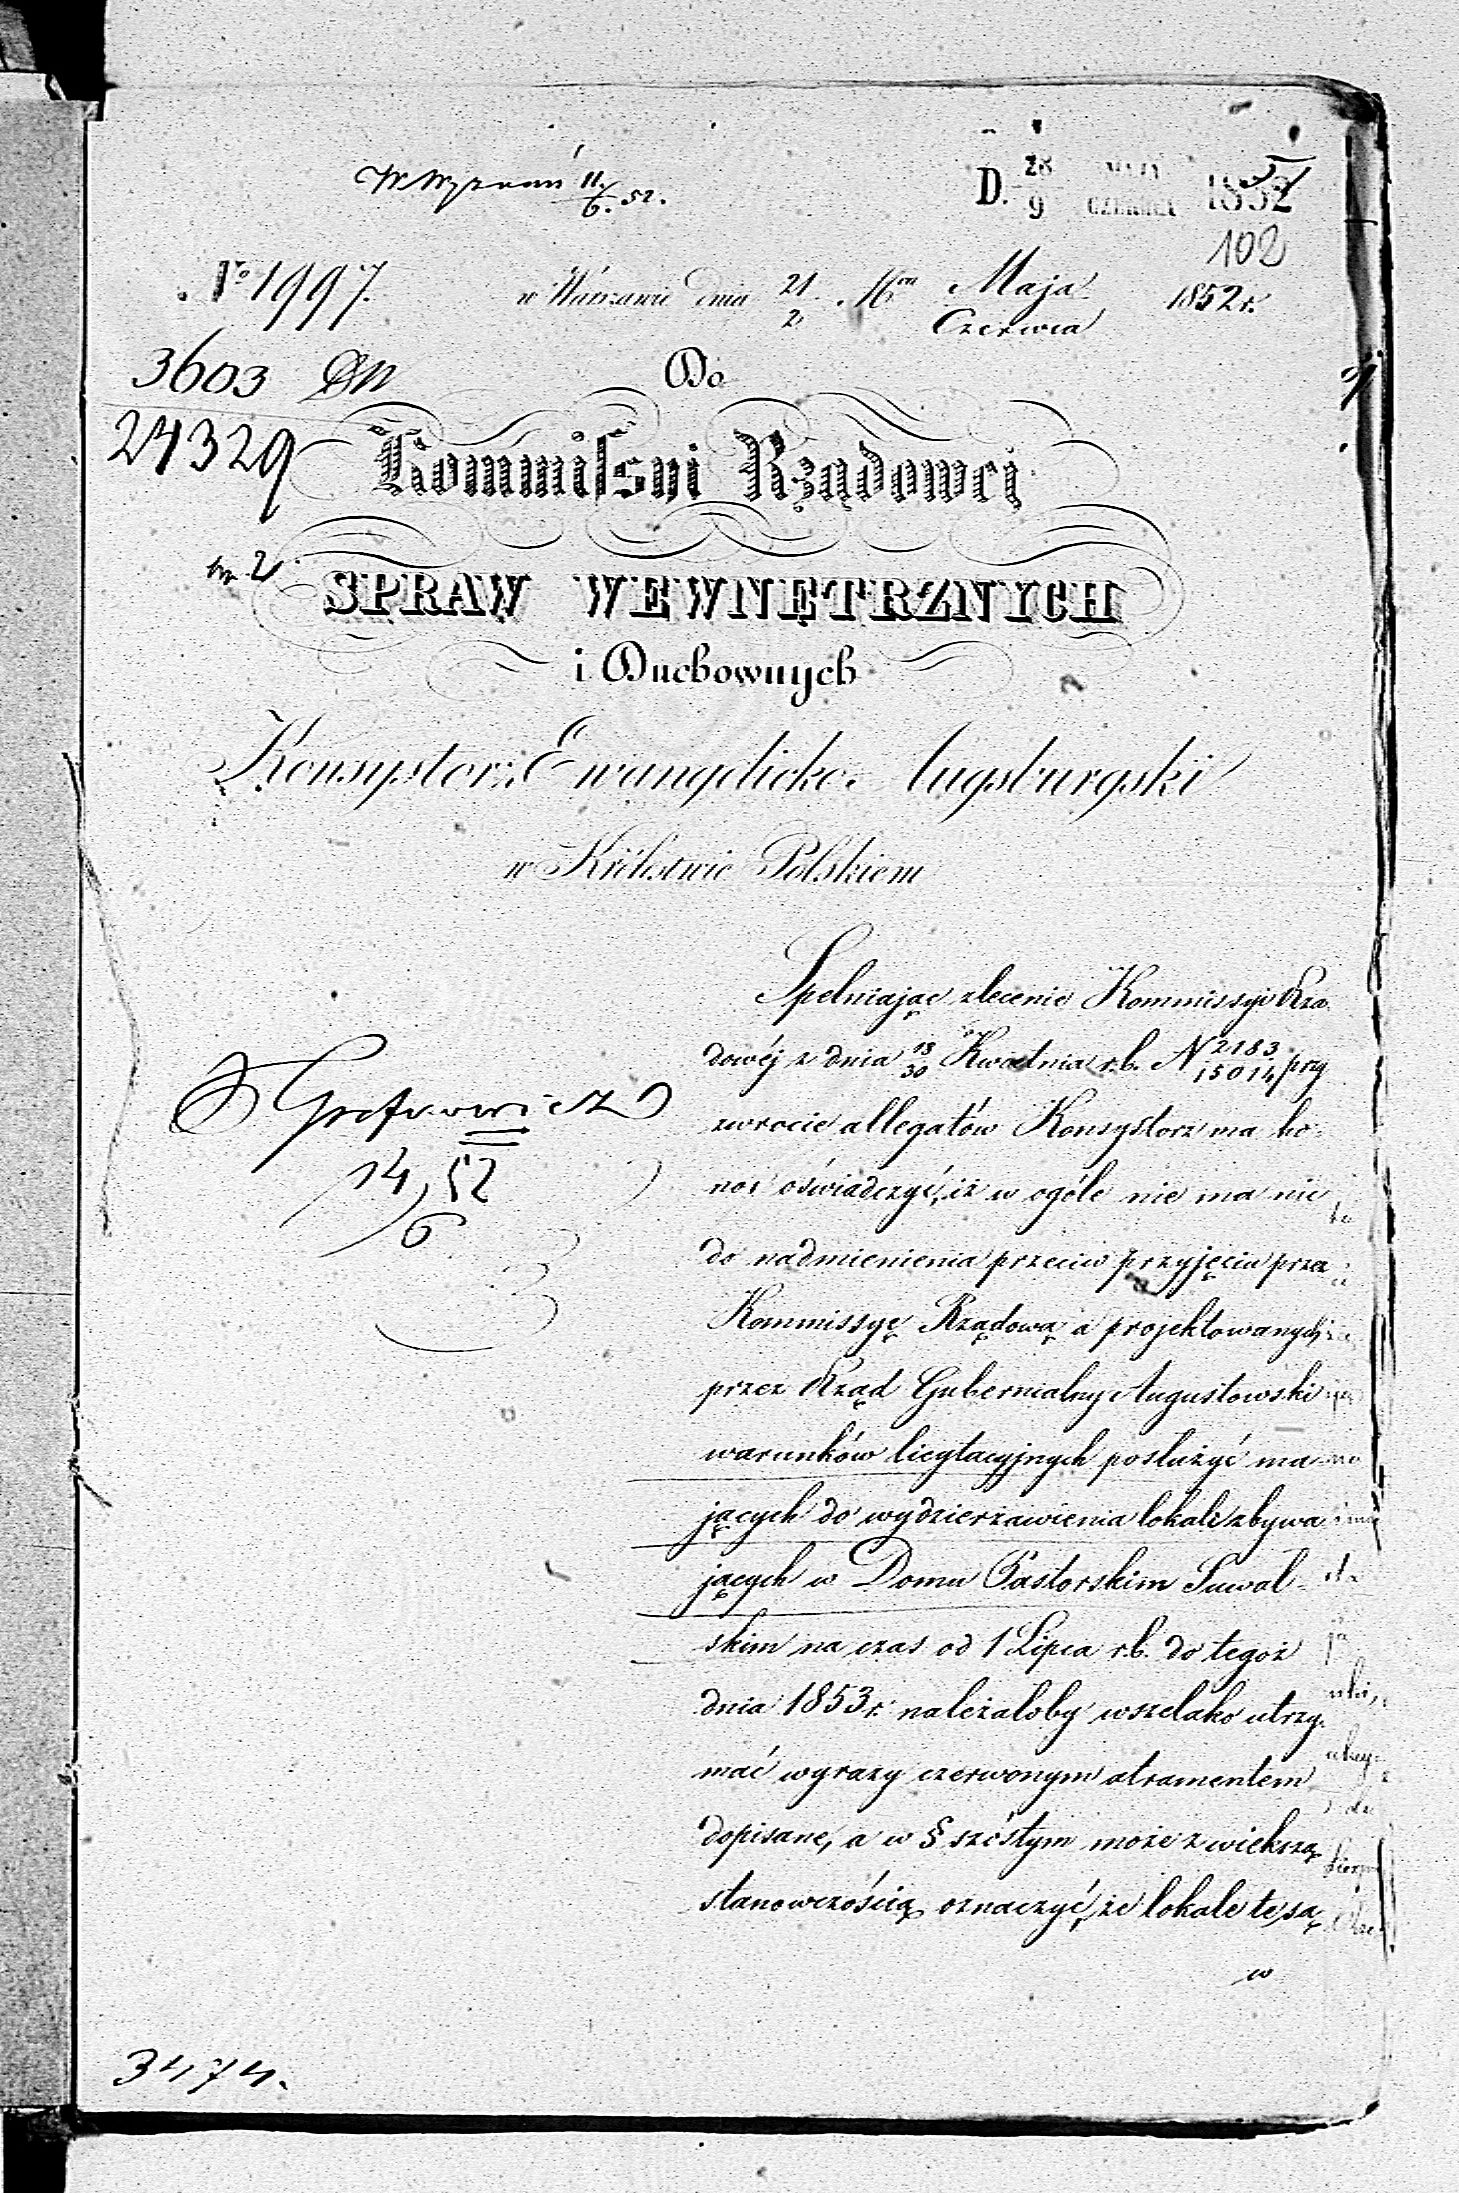 11/6. 52.
D. 26/9 MAJA CZERWCA 1852
102
No 1997.
w Warszawie dnia 21/2 Mca Maja/Czerwca 1852 r.
3603
24329
Do
Kommissyi Rządowej
SPRAW WEWNĘTRZNYCH
i Duchownych
Konsystorz Ewangelicko-Augsburgski
w Królestwie Polskiem
Spełniając zlecenie Kommissyi Rzą-
dowéj z dnia 18/30 Kwietnia r.b. N 2183/15014 przy
zwrocie allegatów Konsystorz ma ho-
nor oświadczyć, iż w ogóle nie ma nic
do nadmienienia przeciw przyjęciu przez
Kommissyę Rządową a projektowanych
przez Rząd Gubernialny Augustowski
warunków licytacyjnych posłużyć ma-
jących do wydzierżawienia lokali zbywa-
jących w Domu Pastorskim Suwal-
skim na czas od 1 Lipca r.b. do tegoż
dnia 1853 r. należałoby wszelako utrzy-
mać wyrazy czerwonym atramentem
dopisane, a w § szóstym może z większą
stanowczością oznaczyć, że lokale te są
w
14/6 52
3474.